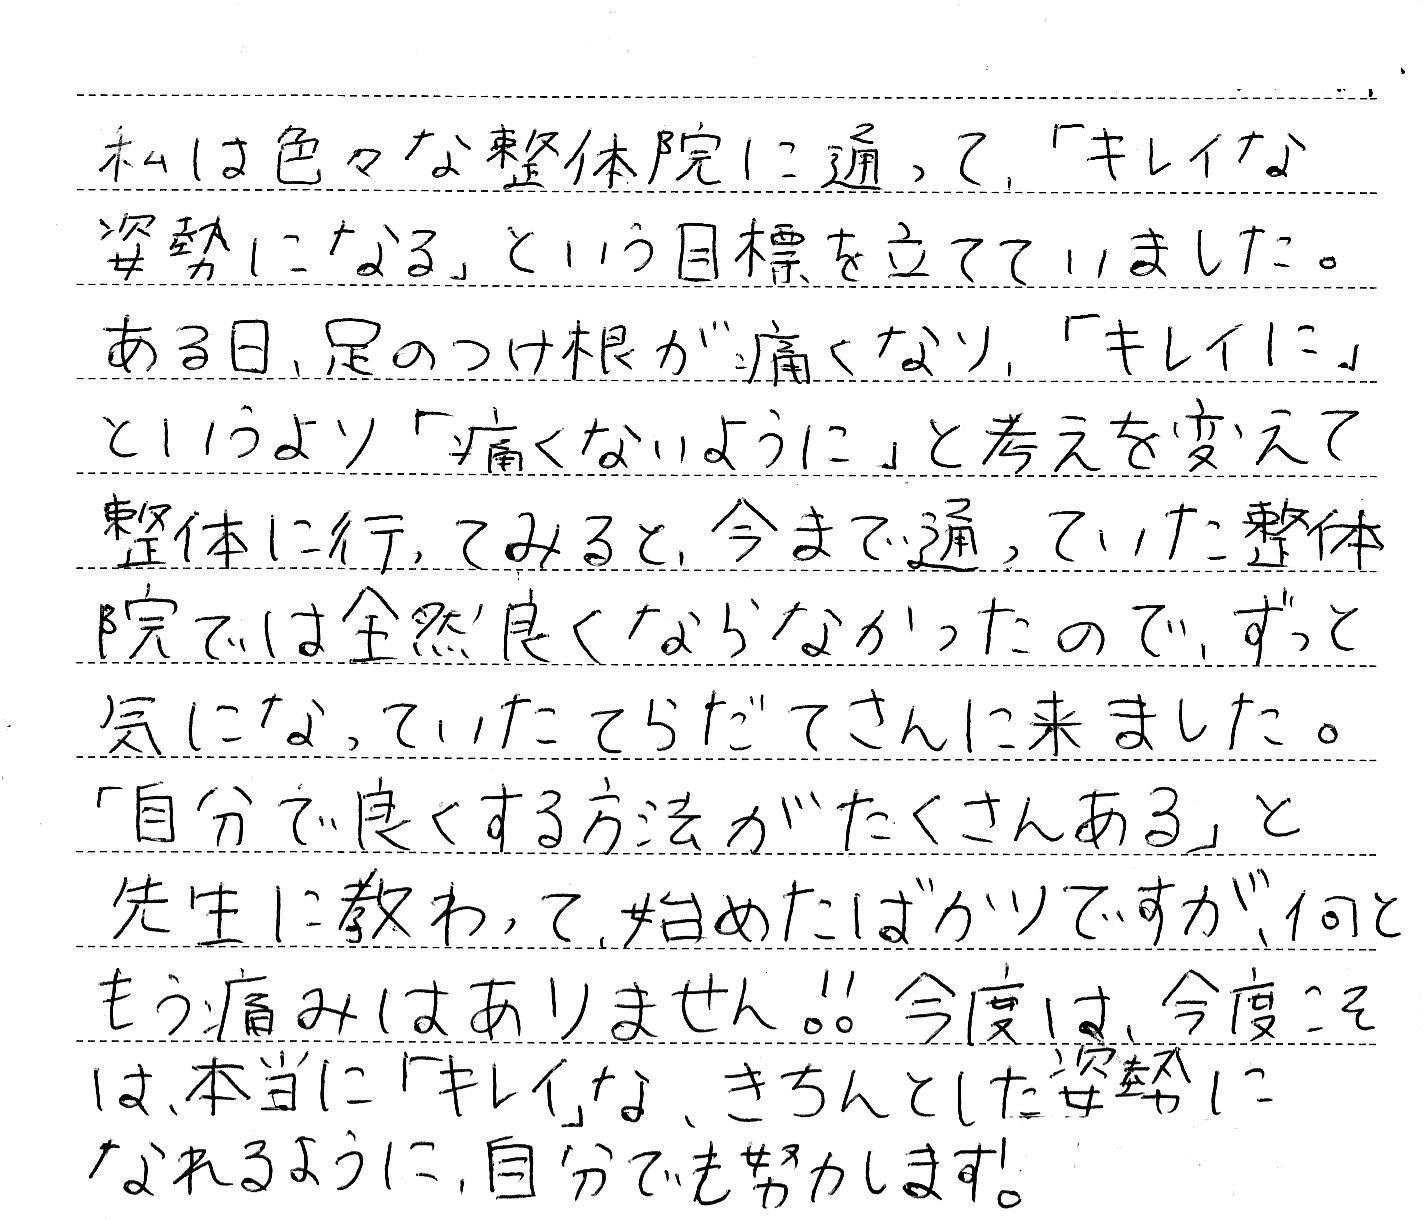 私は色々な整体院に通って、「キレイな
姿勢になる」という目標を立てていました。
ある日、足のつけ根が痛くなり、「キレイに」
というより「痛くないように」と考えを変えて
整体に行ってみると、今まで通っていた整体
院では全然良くならなかったので、ずっと
気になっていたてらだてさんに来ました。
「自分で良くする方法がたくさんある」と
先生に教わって、始めたばかりですが、何と
もう痛みはありません!! 今度は、今度こそ
は、本当に「キレイ」な、きちんとした姿勢に
なれるように、自分でも努力します!